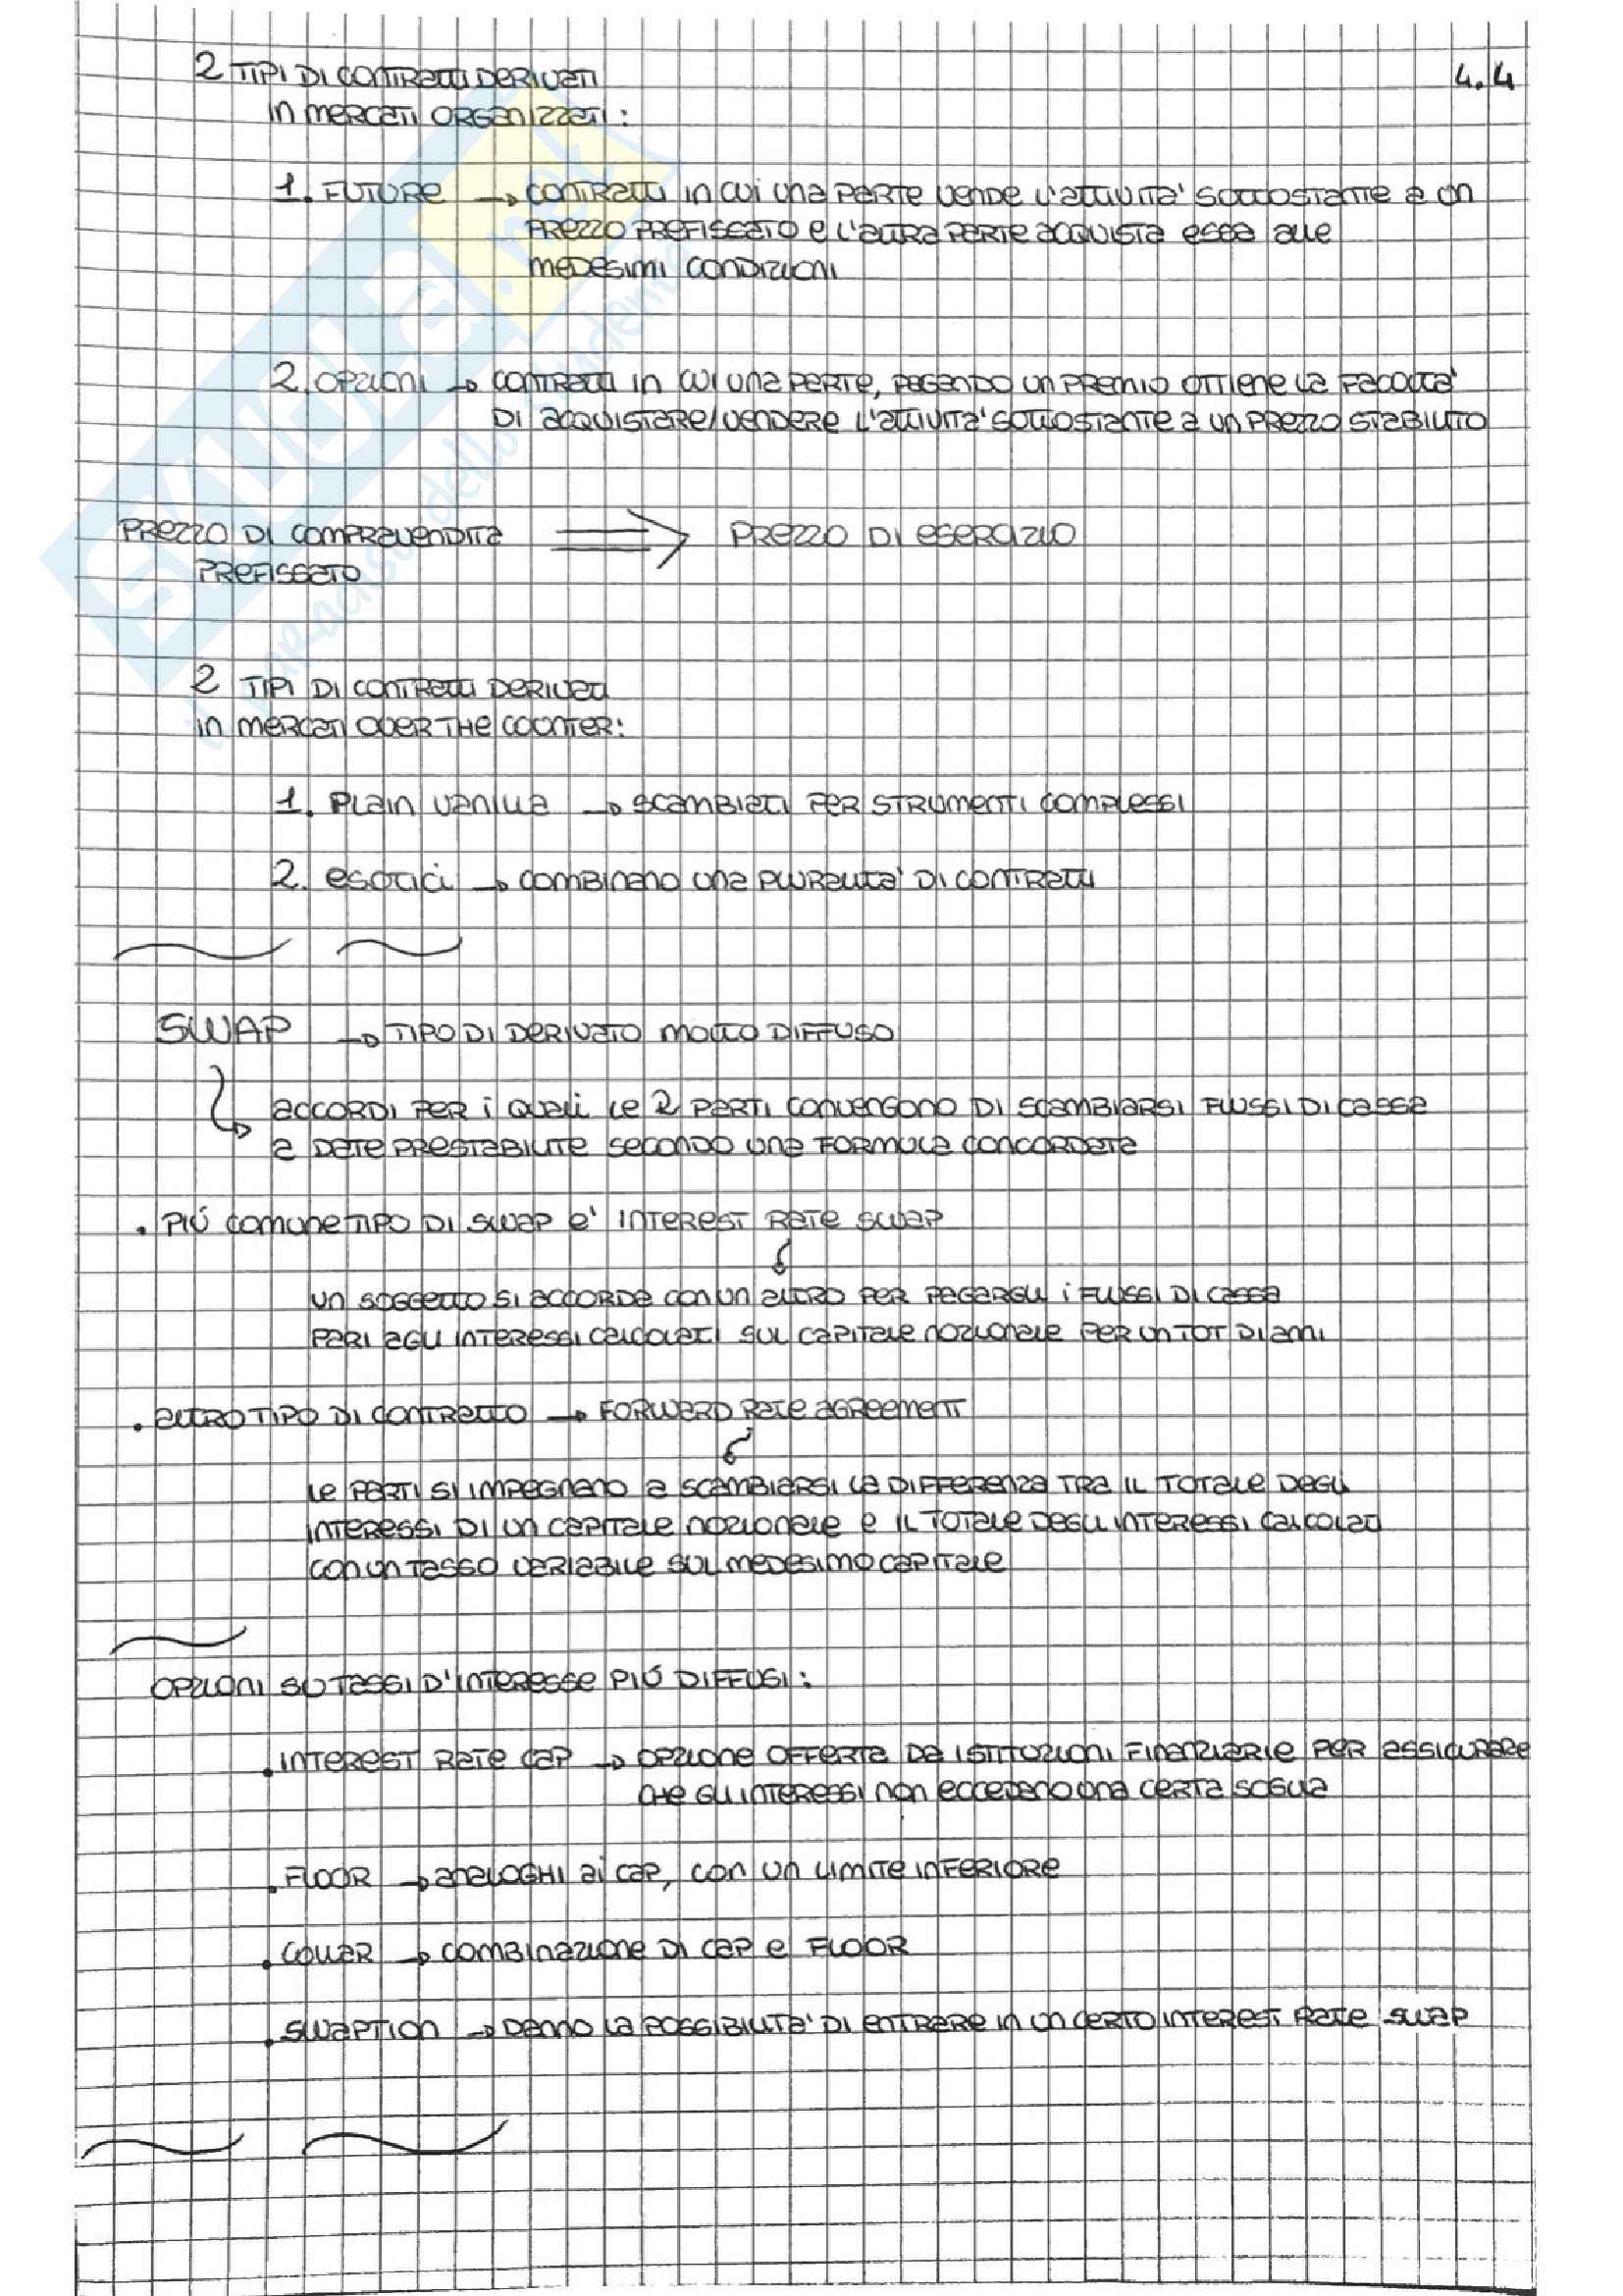 4.4
2 TIPI DI CONTRATTI DERIVATI
IN MERCATI ORGANIZZATI:
1. FUTURE → CONTRATTI IN CUI UNA PARTE VENDE L'ATTIVITA' SOTTOSTANTE A UN
PREZZO PREFISSATO E L'ALTRA PARTE ACQUISTA ESSA ALLE
MEDESIMI CONDIZIONI
2. OPZIONI → CONTRATTI IN CUI UNA PARTE, PAGANDO UN PREMIO OTTIENE LA FACOLTA'
DI ACQUISTARE/VENDERE L'ATTIVITA' SOTTOSTANTE A UN PREZZO STABILITO
PREZZO DI COMPRAVENDITA ⇒ PREZZO DI ESERCIZIO
PREFISSATO
2 TIPI DI CONTRATTI DERIVATI
IN MERCATI OVER THE COUNTER:
1. PLAIN VANILLA → SCAMBIATI PER STRUMENTI COMPLESSI
2. ESOTICI → COMBINANO UNA PLURALITA' DI CONTRATTI
SWAP → TIPO DI DERIVATO MOLTO DIFFUSO
ACCORDI PER I QUALI LE 2 PARTI CONVENGONO DI SCAMBIARSI FLUSSI DI CASSA
A DATE PRESTABILITE SECONDO UNA FORMULA CONCORDATA
. PIÚ COMUNE TIPO DI SWAP E' INTEREST RATE SWAP
UN SOGGETTO SI ACCORDA CON UN ALTRO PER PAGARGLI I FLUSSI DI CASSA
PARI AGLI INTERESSI CALCOLATI SUL CAPITALE NOZIONALE PER UN TOT DI ANNI
. ALTRO TIPO DI CONTRATTO → FORWARD RATE AGREEMENT
LE PARTI SI IMPEGNANO A SCAMBIARSI LA DIFFERENZA TRA IL TOTALE DEGLI
INTERESSI DI UN CAPITALE NOZIONALE E IL TOTALE DEGLI INTERESSI CALCOLATI
CON UN TASSO VARIABILE SUL MEDESIMO CAPITALE
OPZIONI SU TASSI D'INTERESSE PIÚ DIFFUSI:
. INTEREST RATE CAP → OPZIONE OFFERTA DA ISTITUZIONI FINANZIARIE PER ASSICURARE
CHE GLI INTERESSI NON ECCEDANO UNA CERTA SOGLIA
. FLOOR → ANALOGHI AI CAP, CON UN LIMITE INFERIORE
. COLLAR → COMBINAZIONE DI CAP E FLOOR
. SWAPTION → DANNO LA POSSIBILITA' DI ENTRARE IN UN CERTO INTEREST RATE SWAP
SKUOLA.net